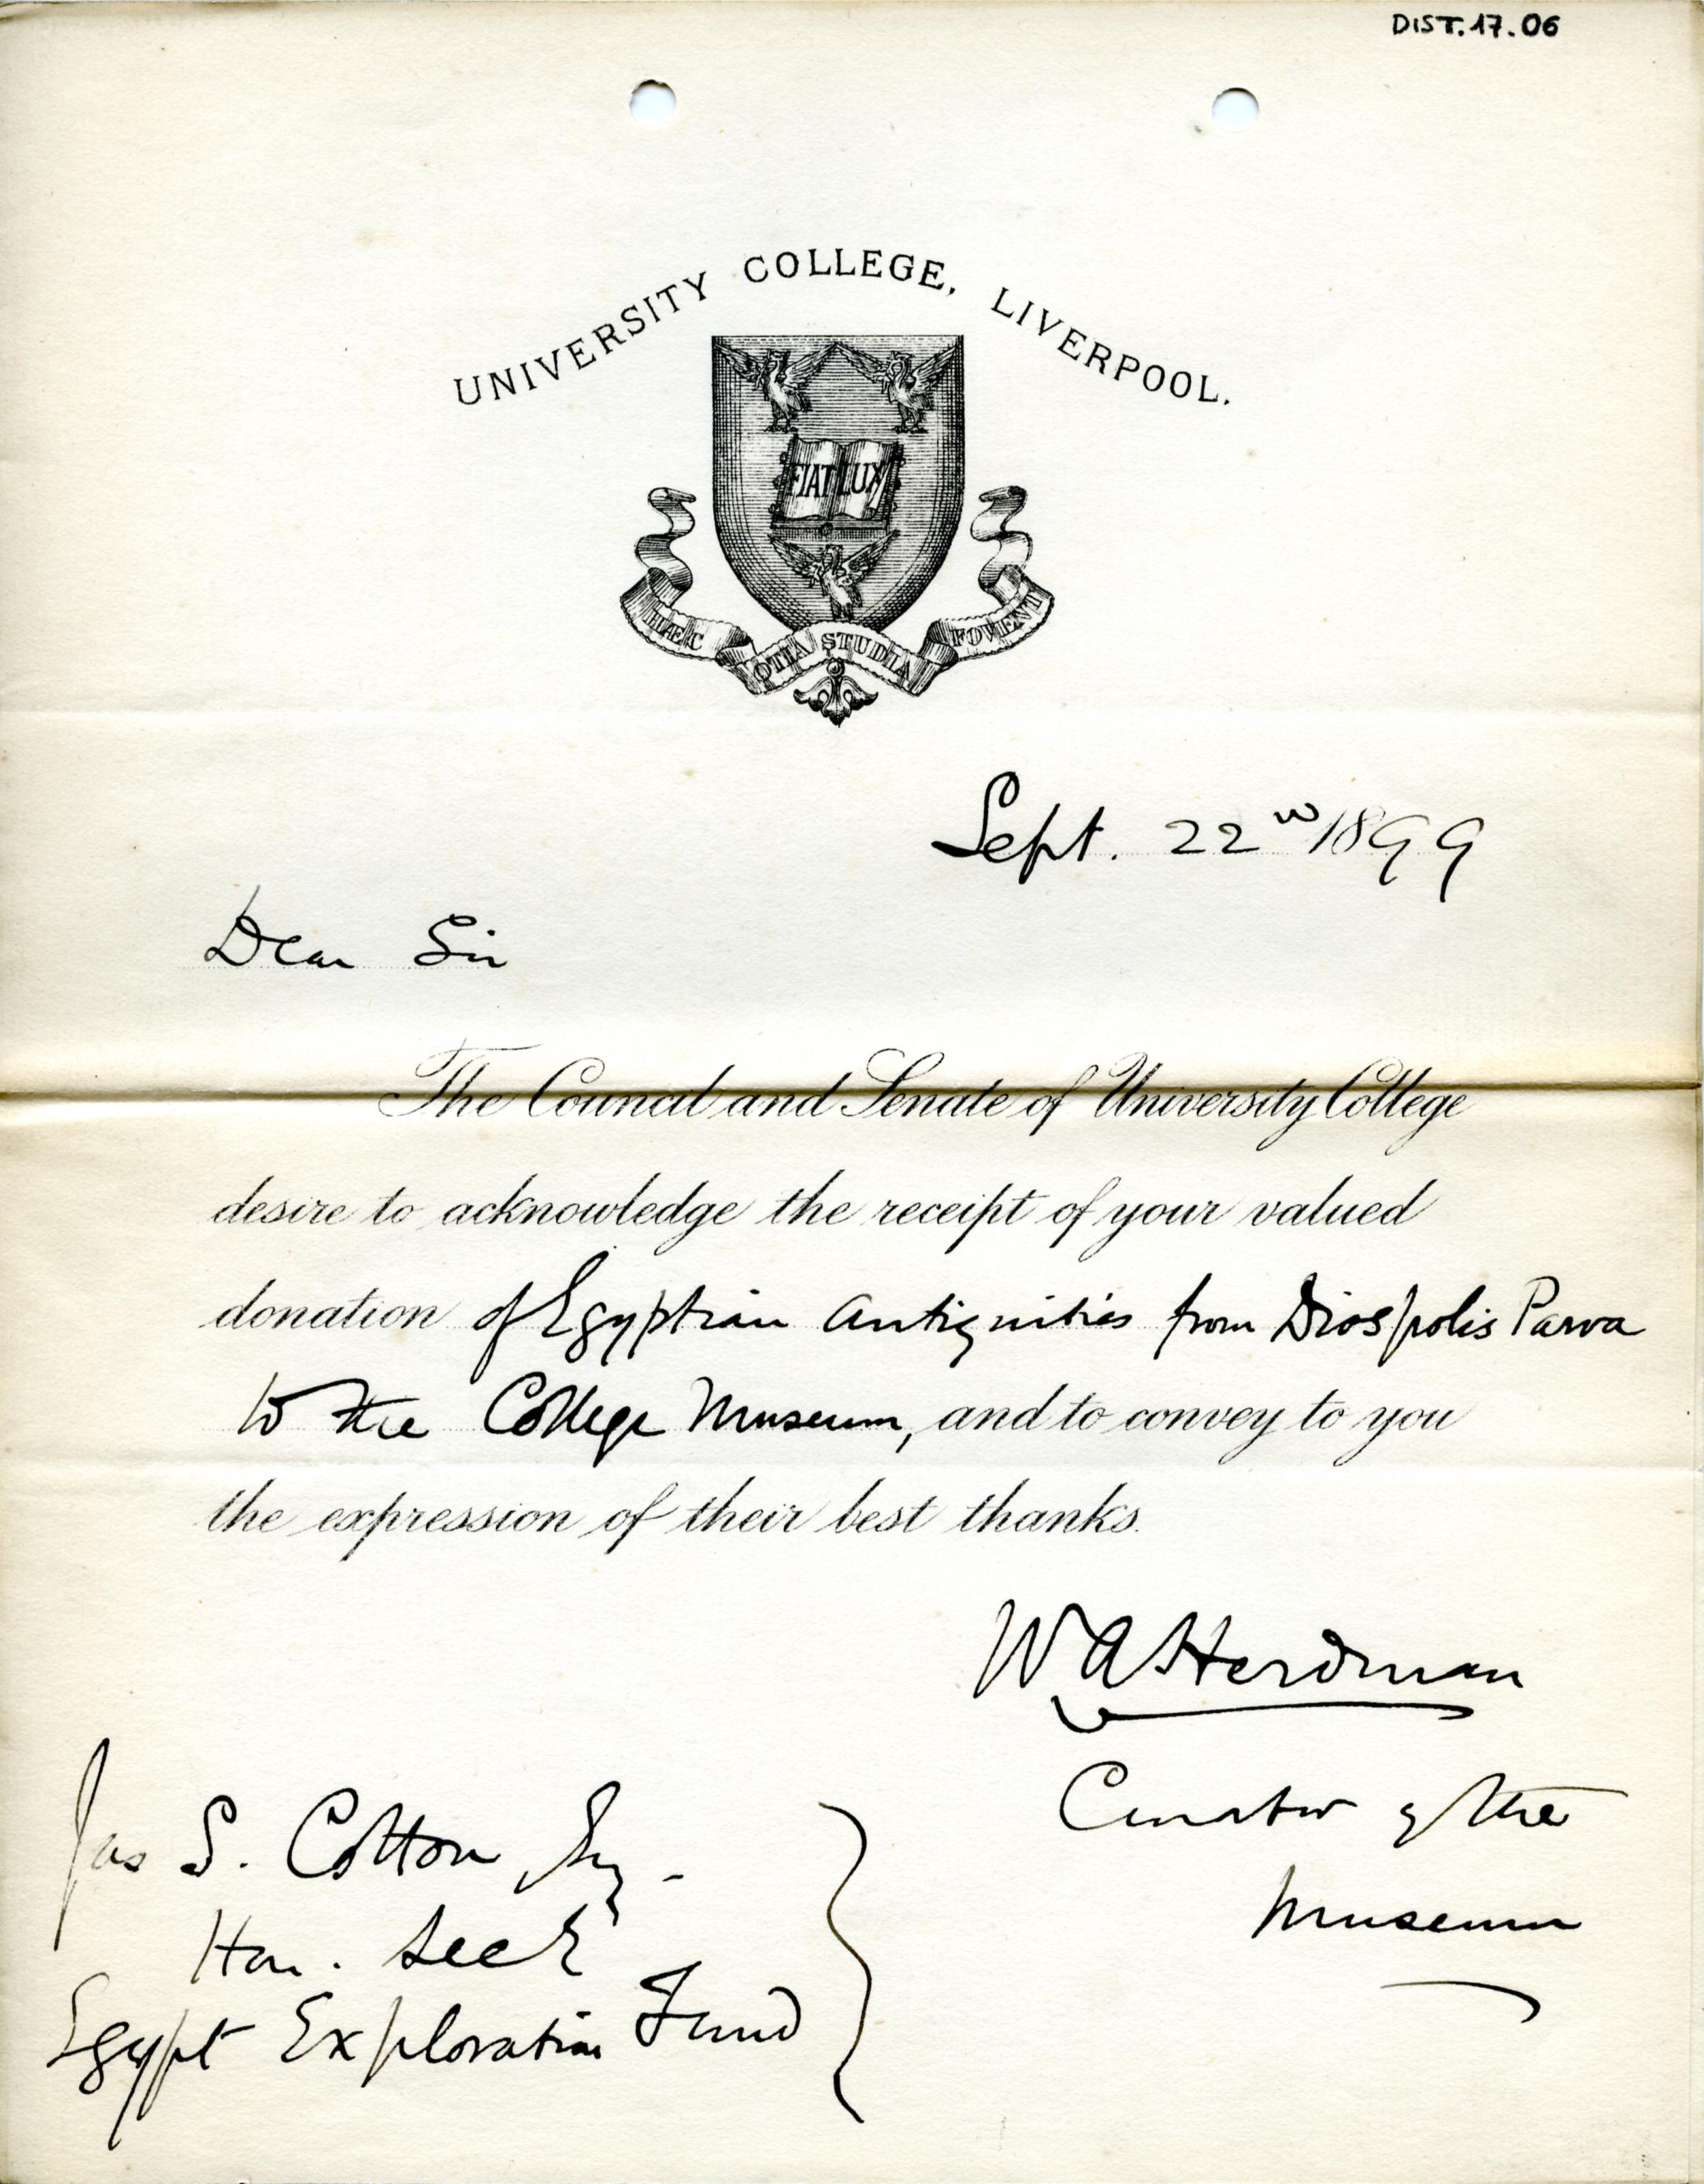 DIST.17.06
UNIVERSITY COLLEGE, LIVERPOOL.
FIAT LUX
HÆC OTIA STUDIA FOVENT
Sept. 22nd 1899
Dear Sir
The Council and Senate of University College
desire to acknowledge the receipt of your valued
donation of Egyptian Antiquities from Diospolis Parva
to the College Museum, and to convey to you
the expression of their best thanks.
W A Herdman
Curator of the
Museum
Jas S. Cotton Esq.
Hon. Secy
Egypt Exploration Fund